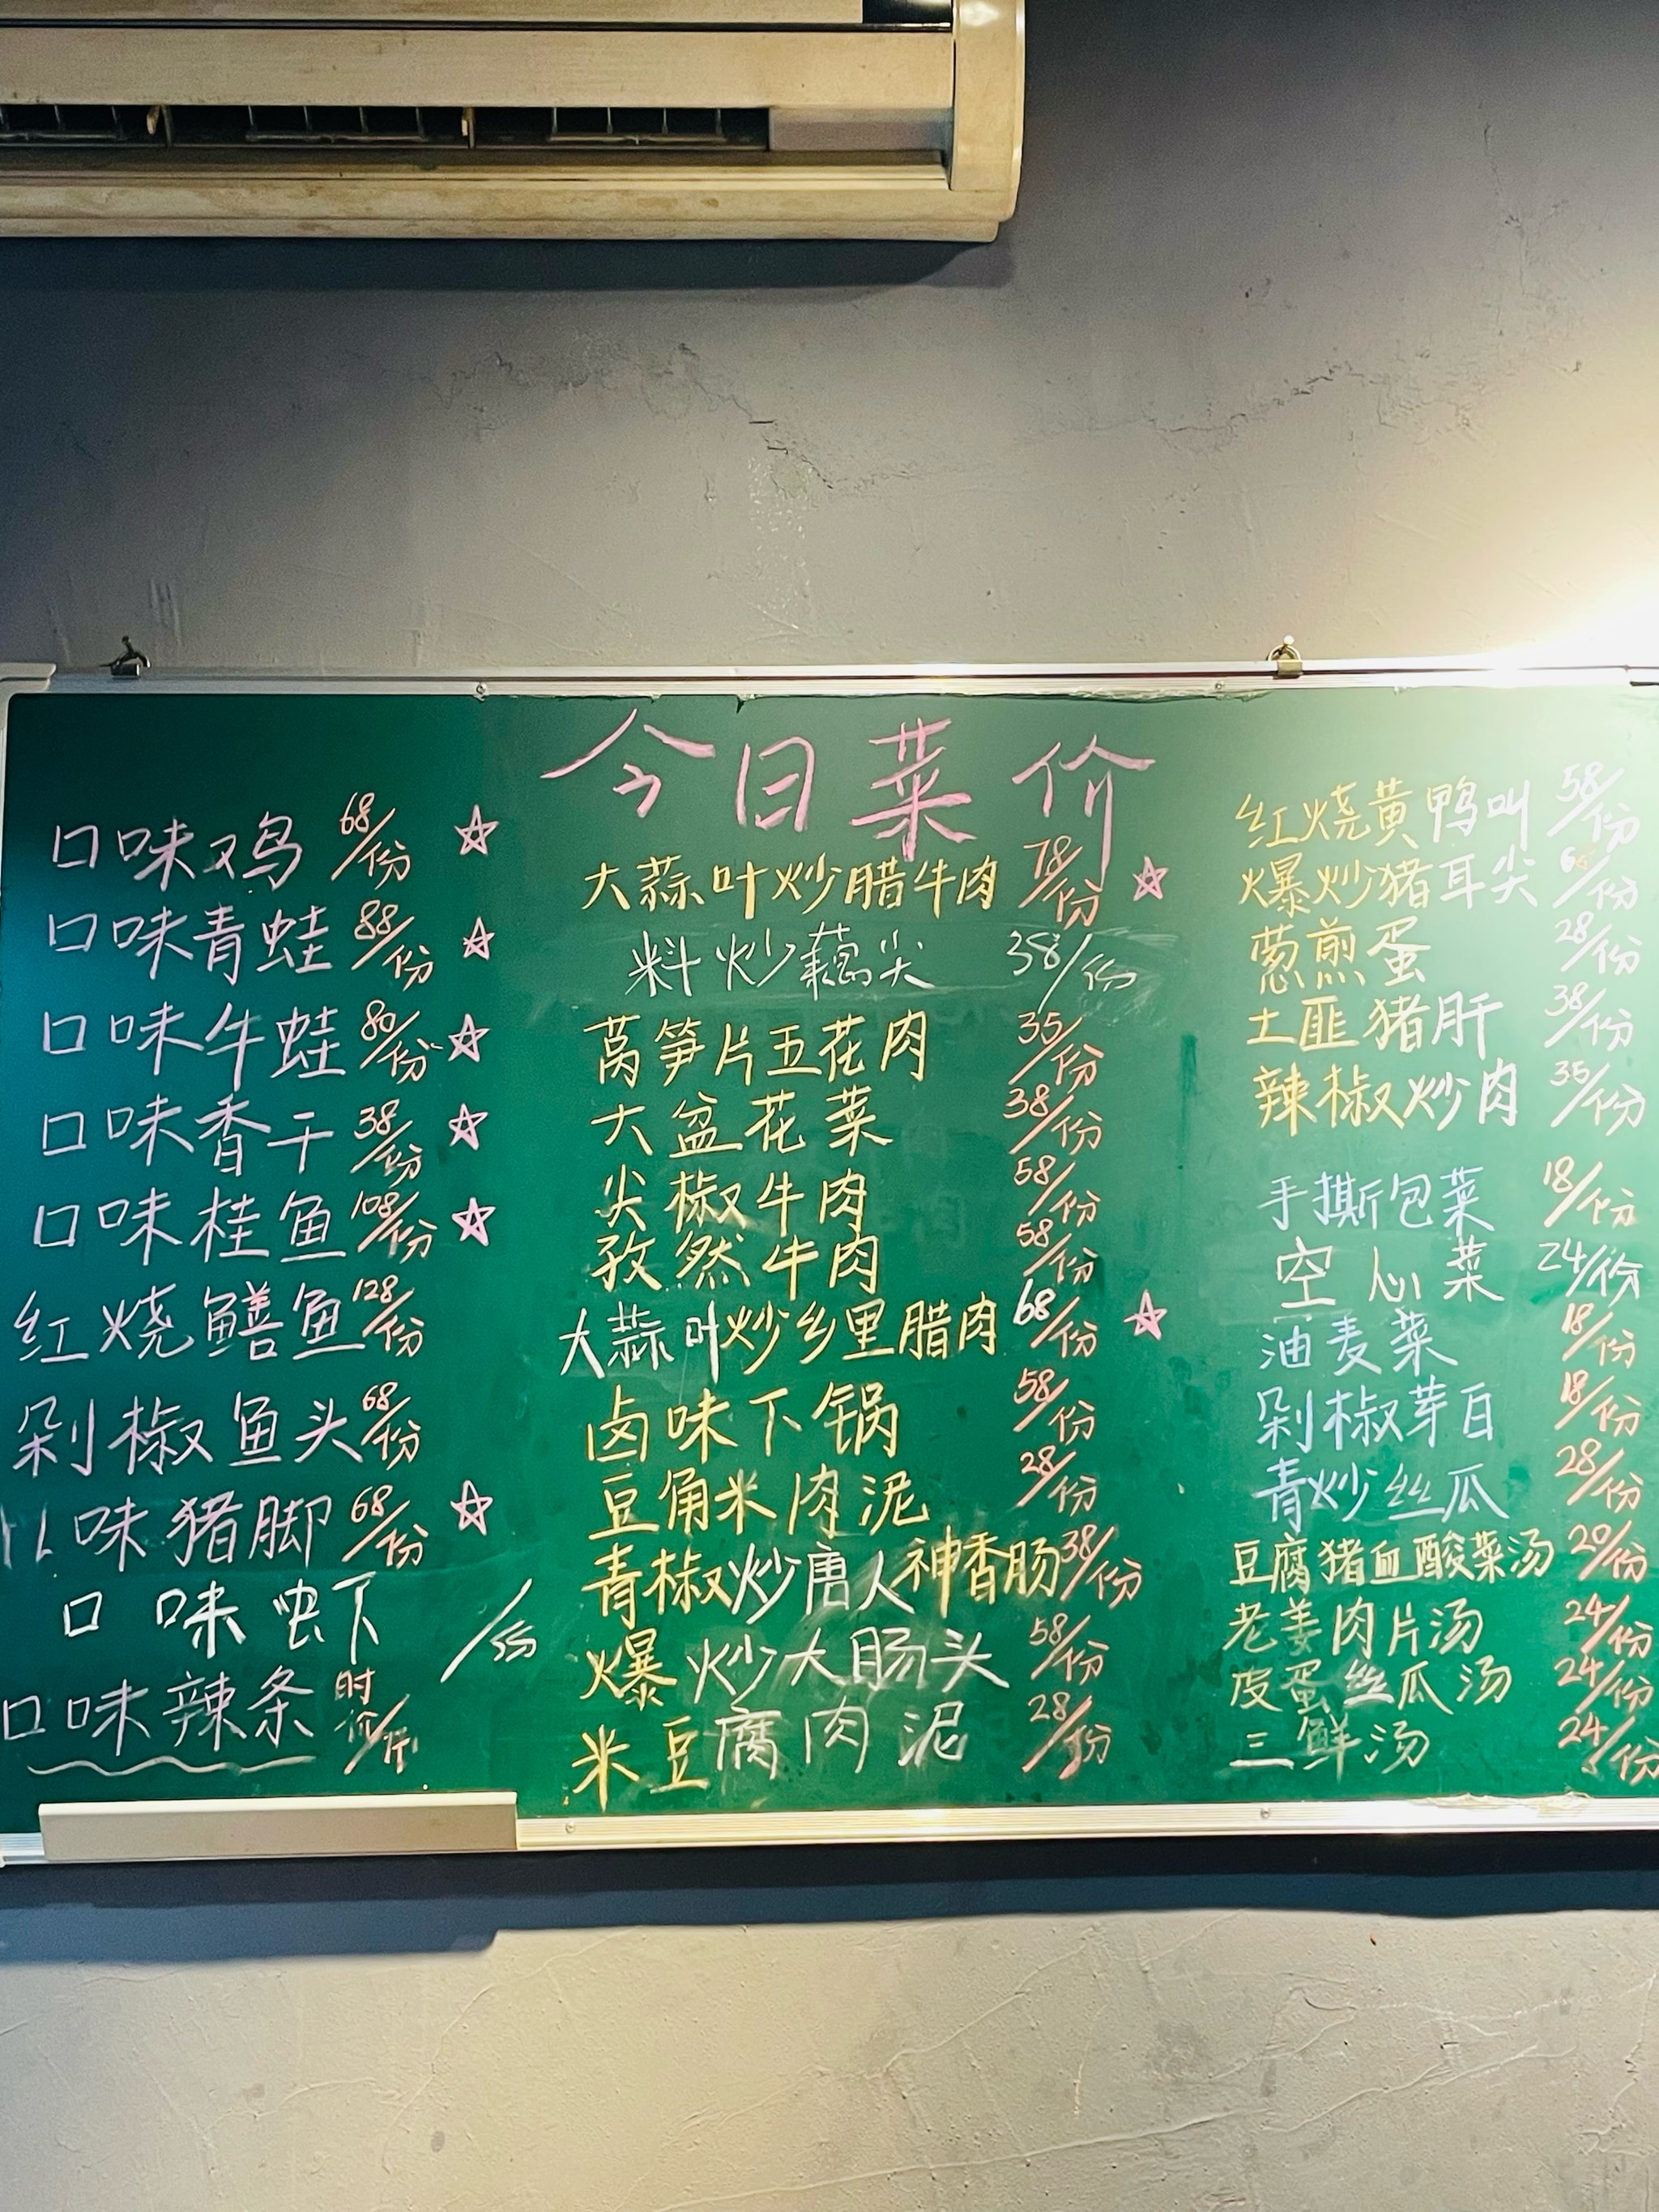 今日菜价
口味鸡 68/份 ☆
口味青蛙 88/份 ☆
口味牛蛙 80/份 ☆
口味香干 38/份 ☆
口味桂鱼 108/份 ☆
红烧鳝鱼 128/份
剁椒鱼头 68/份
味猪脚 68/份 ☆
口味虾
口味辣条 时价/斤
大蒜叶炒腊牛肉 78/份 ☆
料炒藕尖 38/份
莴笋片五花肉 35/份
大盆花菜 38/份
尖椒牛肉 58/份
孜然牛肉 58/份
大蒜叶炒乡里腊肉 68/份 ☆
卤味下锅 58/份
豆角米肉泥 28/份
青椒炒唐人神香肠 38/份
爆炒大肠头 58/份
米豆腐肉泥 28/份
红烧黄鸭叫 58/份
爆炒猪耳尖 /份
葱煎蛋 28/份
土匪猪肝 38/份
辣椒炒肉 35/份
手撕包菜 18/份
空心菜 24/份
油麦菜 18/份
剁椒芽白 18/份
青炒丝瓜 28/份
豆腐猪血酸菜汤 20/份
老姜肉片汤 24/份
皮蛋丝瓜汤 24/份
三鲜汤 24/份